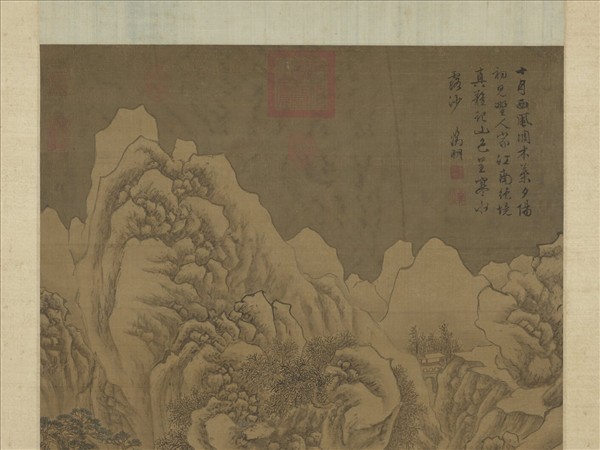 十月西風凋木葉夕陽
初見野人家江南絕境
真難記山色呈寒水
露沙